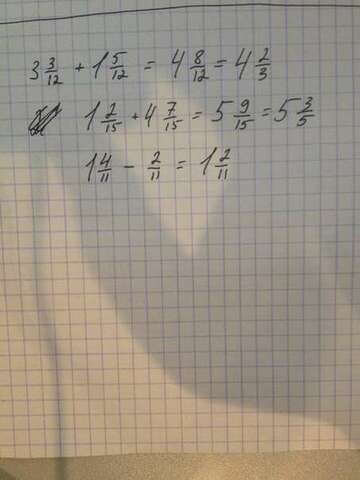 3 3/12 + 1 5/12 = 4 8/12 = 4 2/3
1 2/15 + 4 7/15 = 5 9/15 = 5 3/5
1 4/11 - 2/11 = 1 2/11